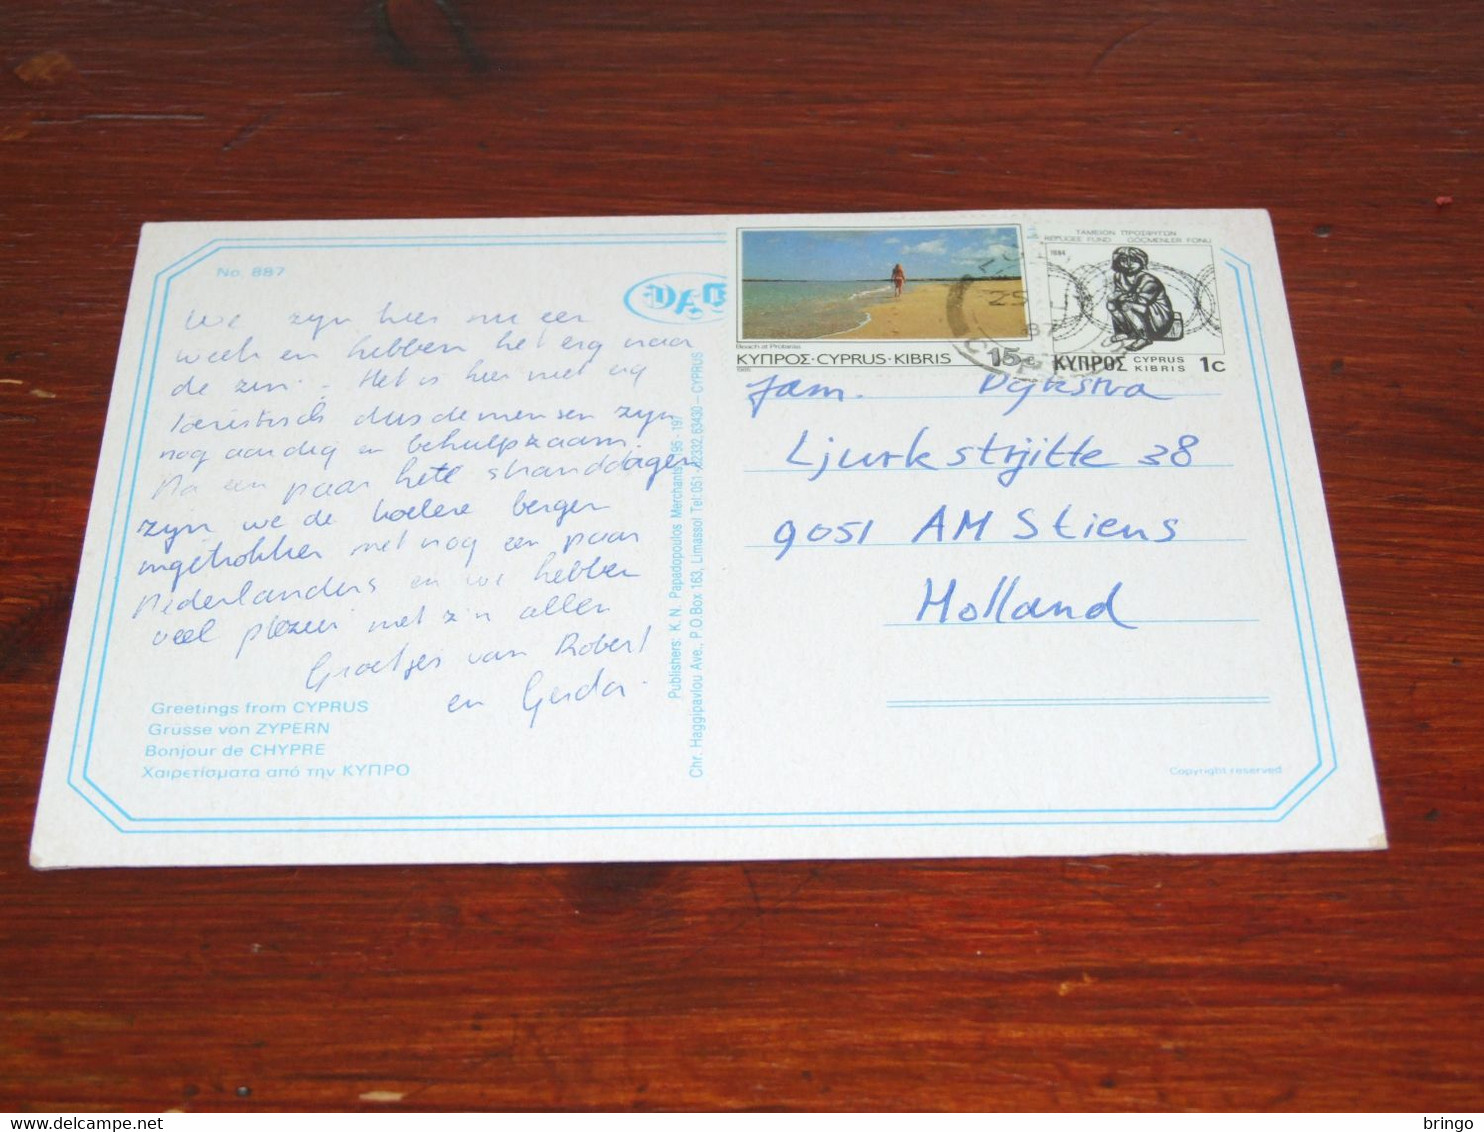 No. 887
We zijn hier nu een
week en hebben het erg naar
de zin. Het is hier niet erg
toeristisch dus de mensen zijn
nog aardig en behulpzaam.
Na een paar hete stranddagen
zijn we de koelere bergen
ingetrokken met nog een paar
Nederlanders en we hebben
veel plezier met z'n allen
Groetjes van Robert
en Gerda.
Greetings from CYPRUS
Grüsse von ZYPERN
Bonjour de CHYPRE
Χαιρετίσματα από την ΚΥΠΡΟ
Publishers: K. N. Papadopoulos Merchants 195 - 197
Chr. Haggipavlou Ave., P.O.Box 163, Limassol Tel:051- 62332,63430 - CYPRUS
Beach at Protaras
ΚΥΠΡΟΣ·CYPRUS·KIBRIS 15c
1985
ΤΑΜΕΙΟΝ ΠΡΟΣΦΥΓΩΝ
REFUGEE FUND GÖÇMENLER FONU
1984
ΚΥΠΡΟΣ CYPRUS KIBRIS 1c
87
fam. Dijkstra
Ljurkstrjitte 38
9051 AM Stiens
Holland
Copyright reserved
bringo
delcampe.net